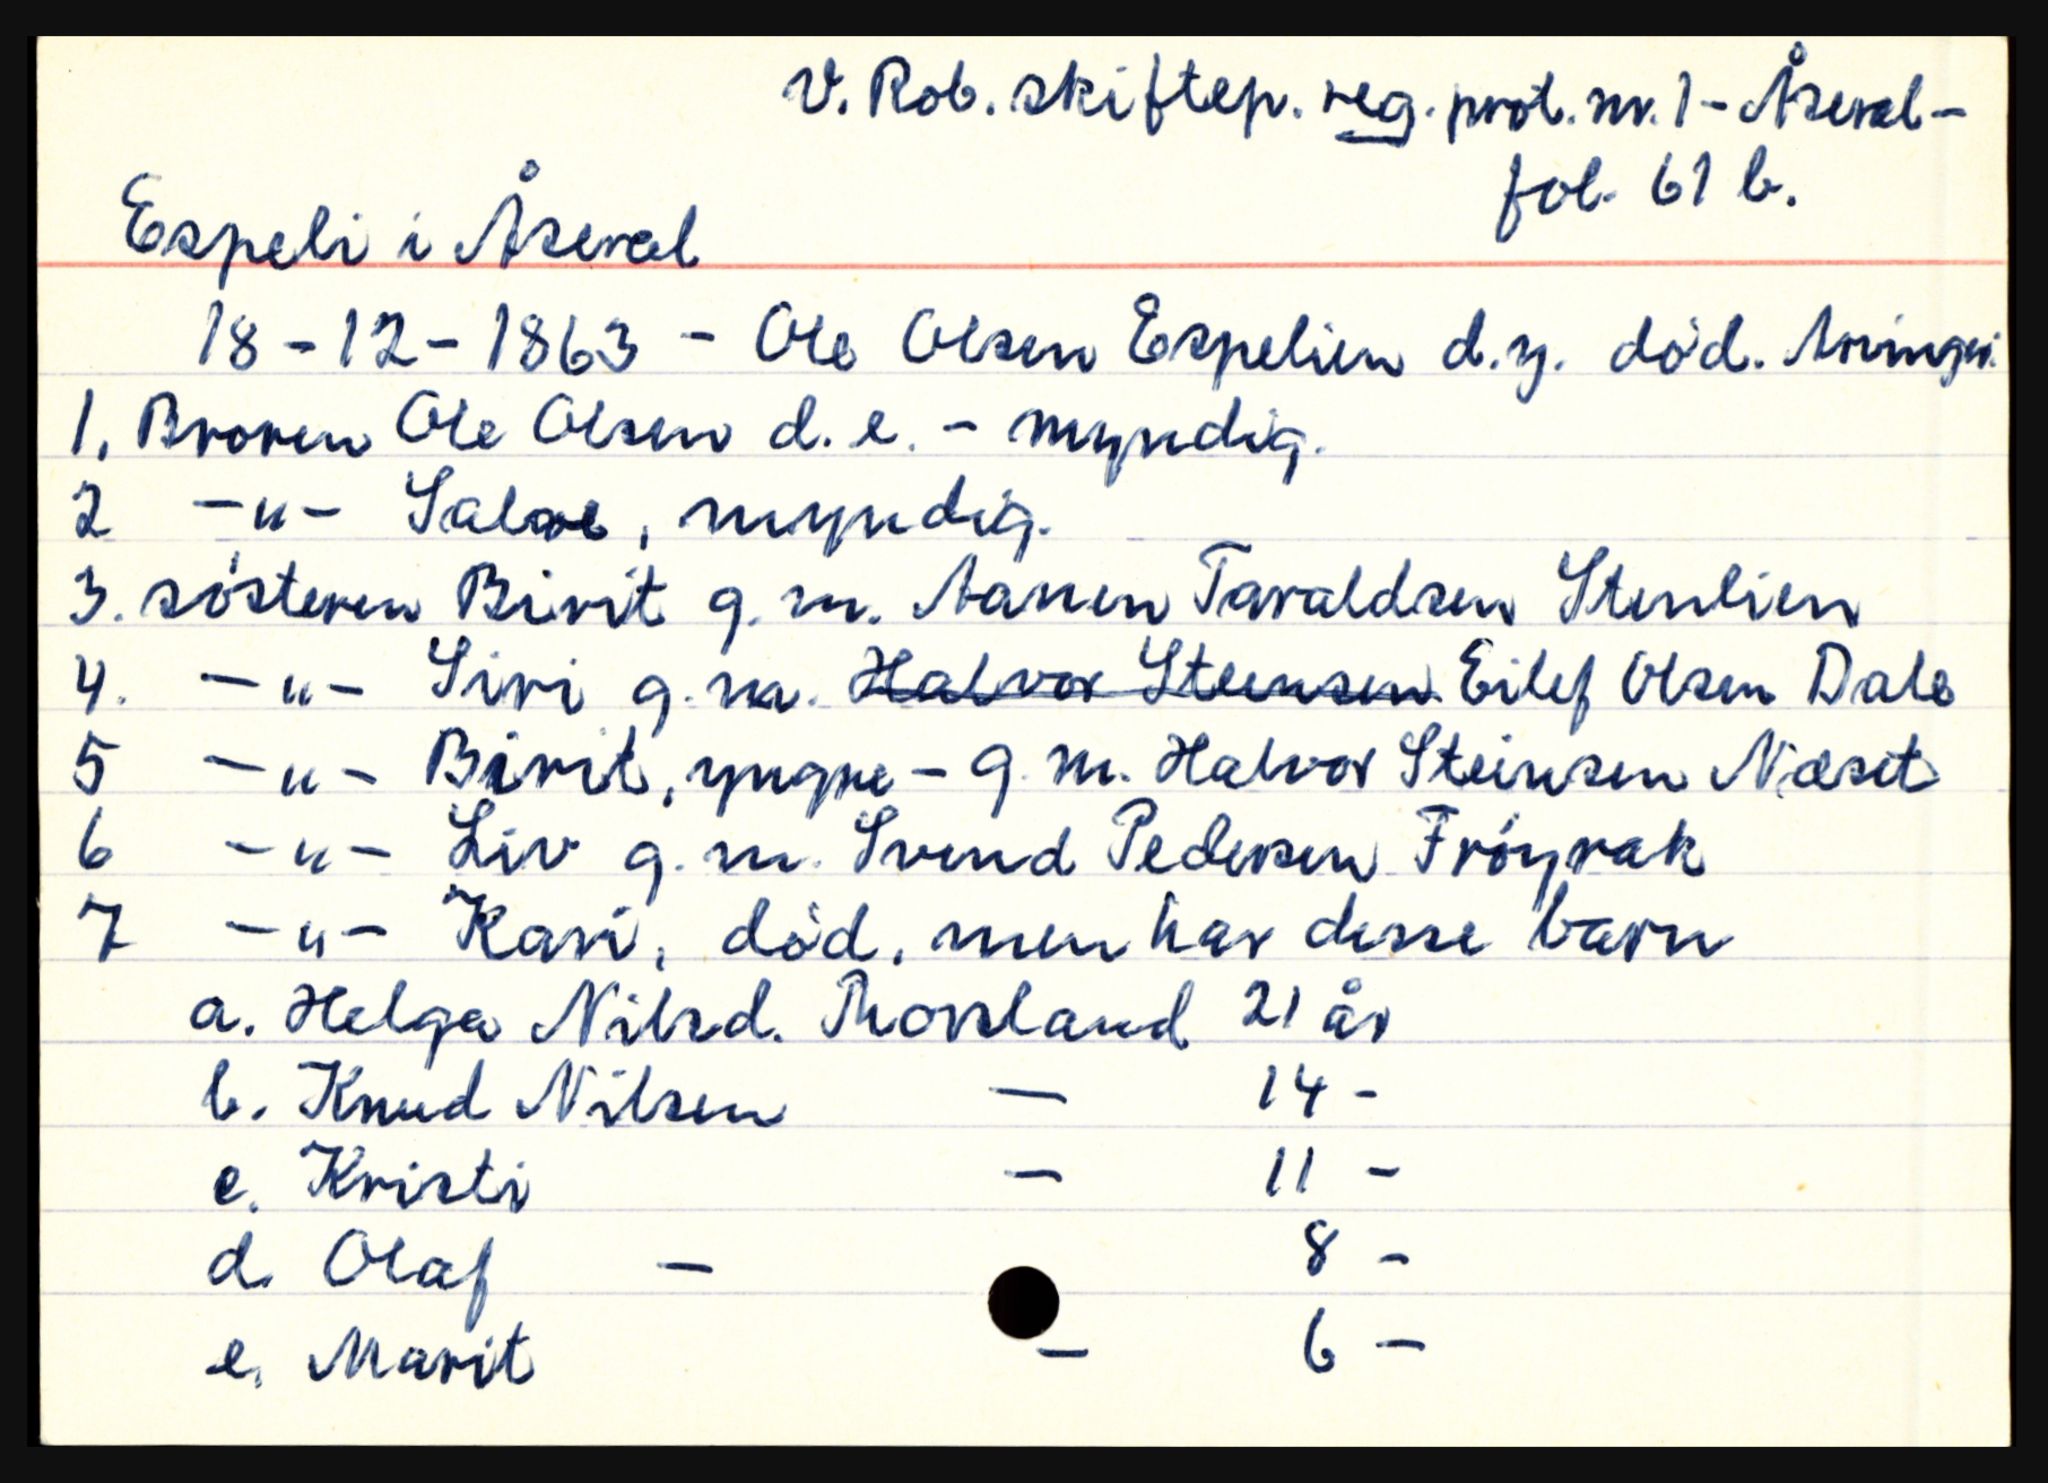 V. Rob. skiftep. reg. prot. nr. 1 - Åseral -
fol. 61 b.
Espeli i Åseral
18-12-1863 - Ole Olsen Espelien d.y. død. Arvinger:
1. Broren Ole Olsen d.e. - myndig.
2 -"- Salve, myndig.
3. søsteren Birit g.m. Aanen Taraldsen Stenlien
4. -"- Siri g.m. Halvor Steensen Eilef Olsen Dale
5 -"- Birit, yngre - g.m. Halvor Steinsen Næset
6 -"- Liv g.m. Svend Pedersen Frøyrak
7 -"- Kari, død, men har desse barn
a. Helga Nilsd. Thorsland 21 år
b. Knud Nilsen — 14 -
c. Kristi — 11 -
d. Olaf — 8 -
e. Marit — 6 -